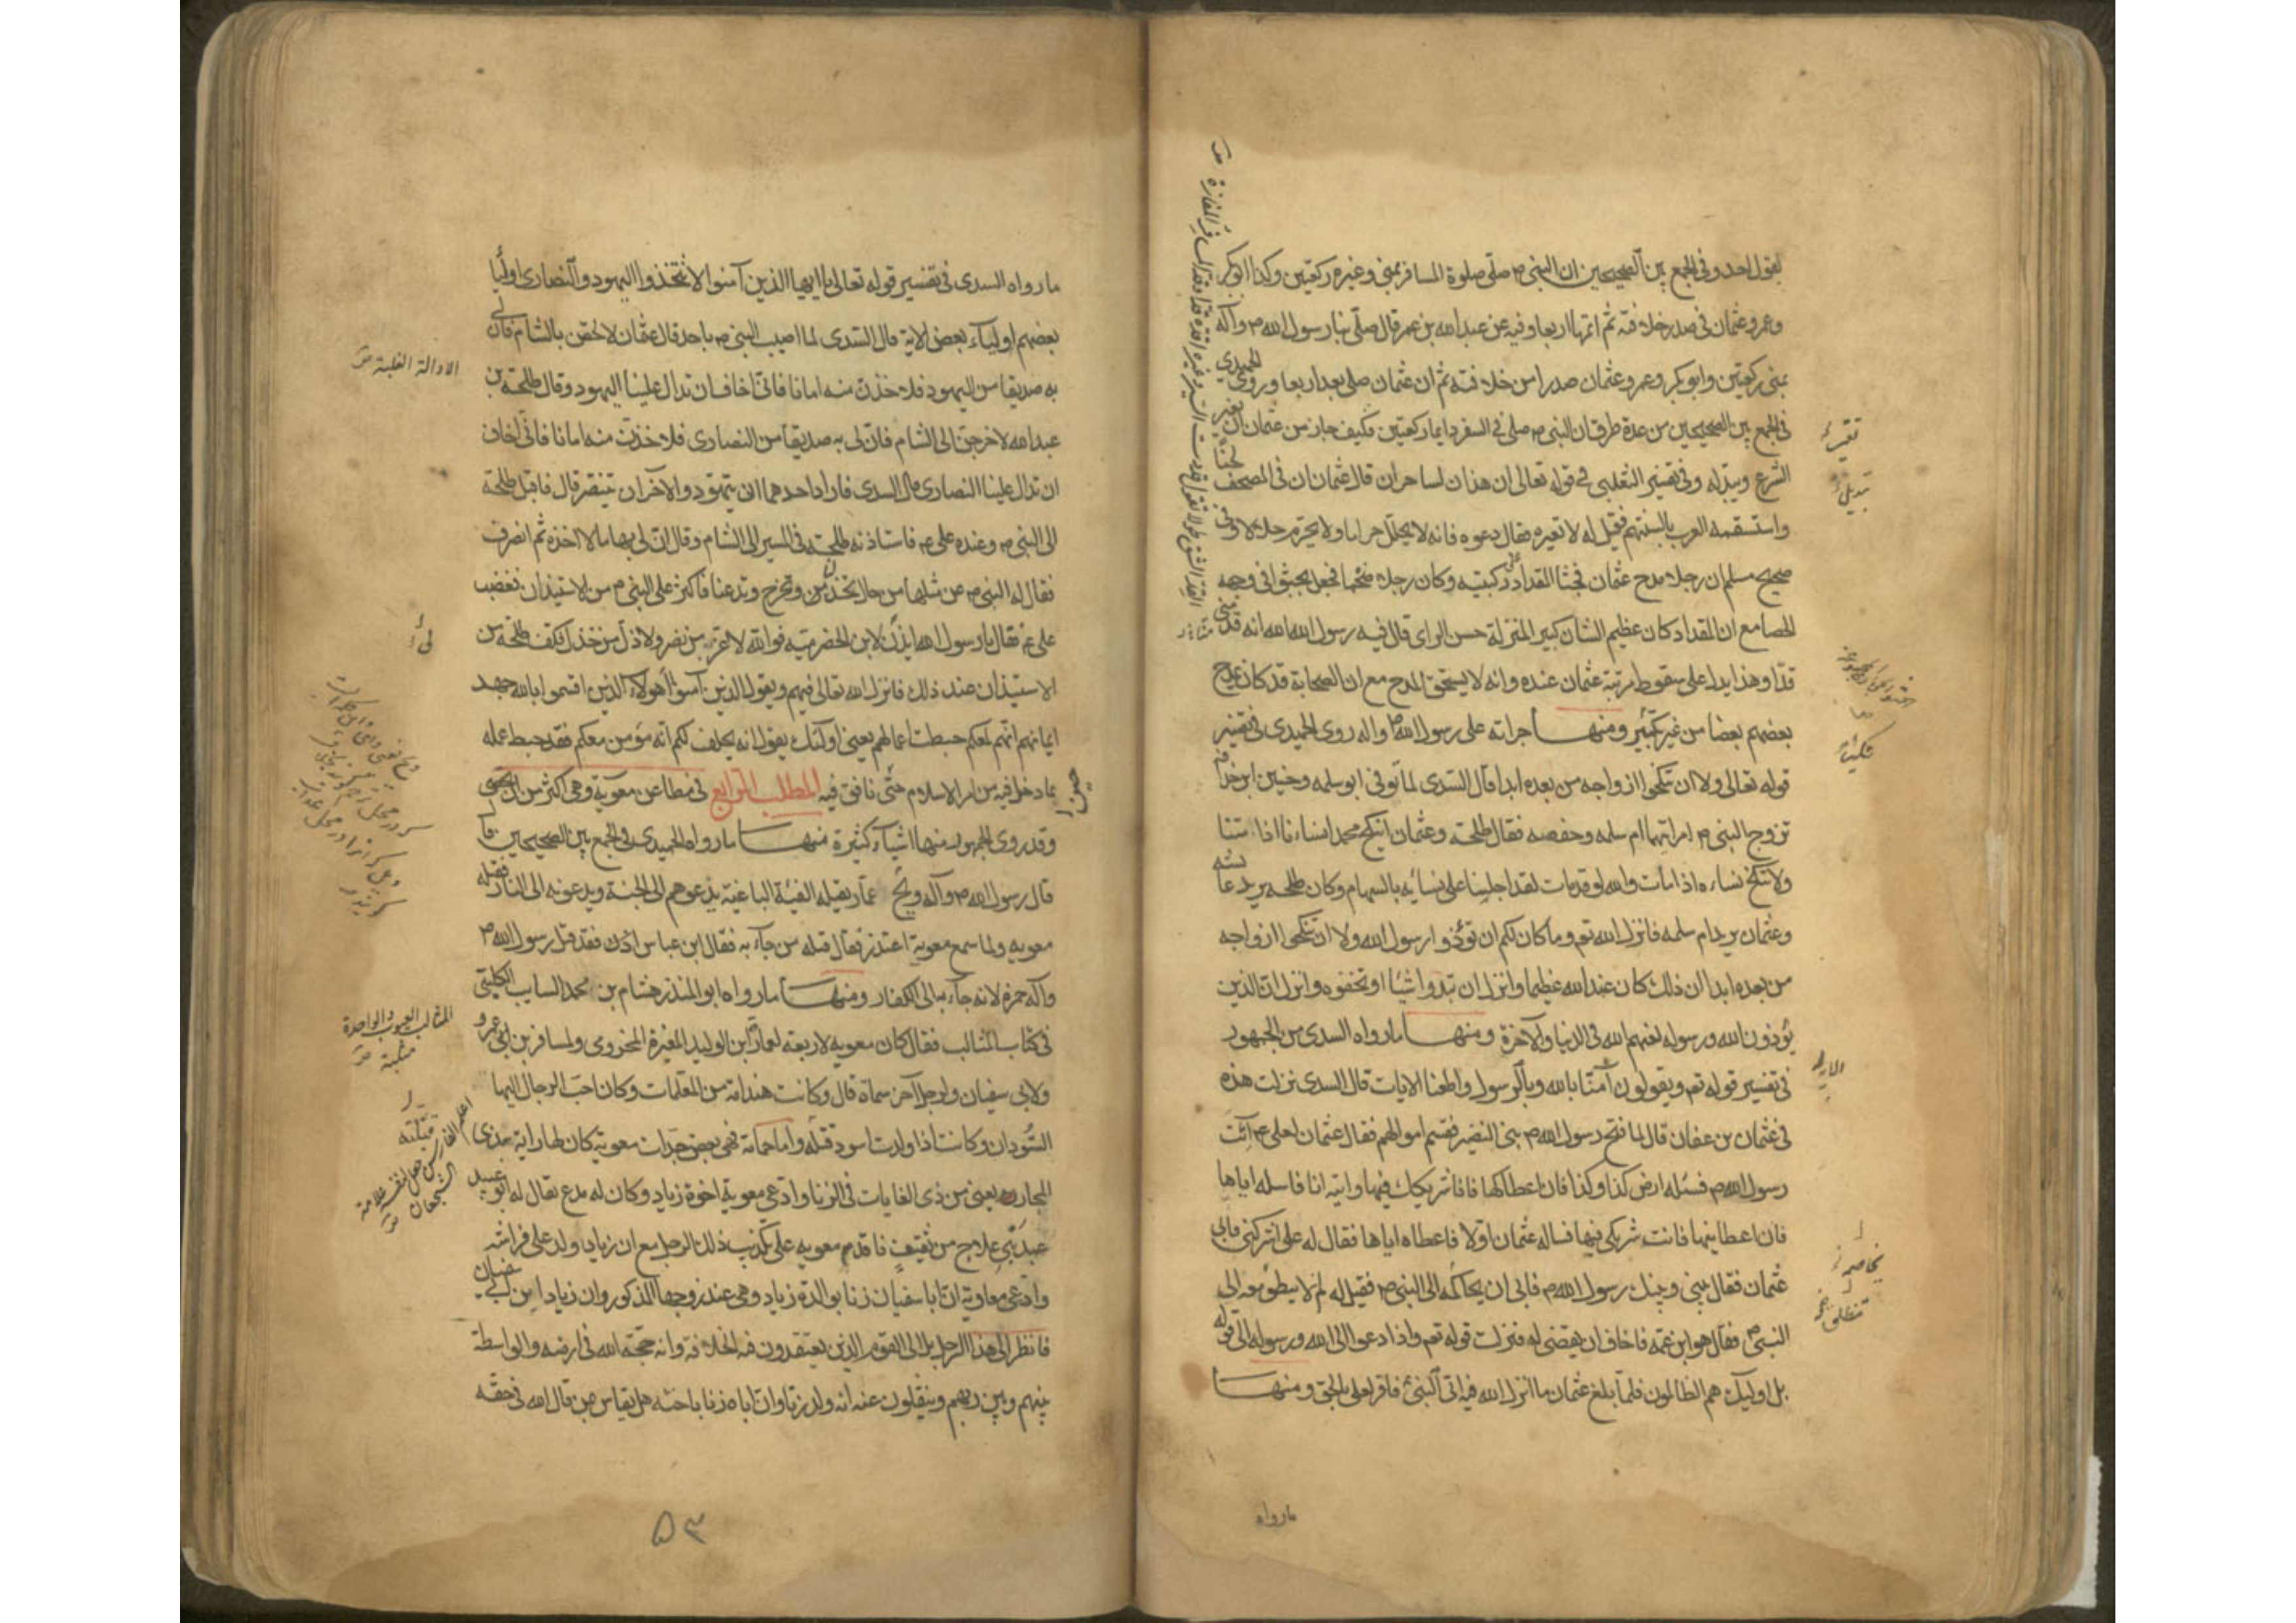 لقول احد وفى الجمع بين الصحيحين ان النبى ص صلى صلوة المسافر بمنى وغيره ركعتين وكذا ابو بكر
وعمر وعثمان فى صدر خلافته ثم اتمها اربعا وفيه عن عبد الله بن عمر قال صلى بنا رسول الله ص وآله
بمنى ركعتين وابو بكر وعمر وعثمان صدرا من خلافته ثم ان عثمان صلى بعد اربعا وروى الحميدى
فى الجمع بين الصحيحين من عدة طرق ان النبى ص صلى فى السفر دايما ركعتين فكيف جاز من عثمان ان يغير
الشرع ويبدله وفى تفسير الثعلبى فى قوله تعالى ان هذان لساحران قال عثمان ان فى المصحف لحنا
واستسقمه العرب بالسنتهم فقيل له لا تغيره فقال دعوه فانه لا يحلل حراما ولا يحرم حلالا وفى
صحيح مسلم ان رجلا مدح عثمان فجثا المقداد على ركبتيه وكان رجلا ضخما فجعل يحثوا فى وجهه
الحصا مع ان المقداد كان عظيم الشان كبير المنزلة حسن الراى قال فيه رسول الله انه قد منى
قدّا وهذا يدل على سقوط مرتبة عثمان عنده وانه لا يستحق المدح مع ان الصحابة قد كان يمدح
بعضهم بعضا من غير نكير ومنها جراته على رسول الله ص واله روى الحميدى فى تفسير
قوله تعالى ولا ان تنكحوا ازواجه من بعده ابدا قال السدى لما توفى ابو سلمه وخنيس ابن حذافه
تزوج النبى ص امراتيهما ام سلمه وحفصه فقال طلحة وعثمان اينكح محمد نساءنا اذا متنا
ولا ننكح نساءه اذا مات والله لو قد مات لقد اجلبنا على نسائه بالسهام وكان طلحه يريد عائشه
وعثمان يريد ام سلمه فانزل الله تعم وما كان لكم ان تؤذوا رسول الله ولا ان تنكحوا ازواجه
من بعده ابدا ان ذلك كان عند الله عظيما وانزل ان تبدوا شيئا او تخفوه وانزل ان الذين
يؤذون الله ورسوله لعنهم الله فى الدنيا والآخرة ومنها ما رواه السدى من الجمهور
فى تفسير قوله تعم ويقولون آمنا بالله وبالرسول واطعنا الايات قال السدى نزلت هذه
فى عثمان بن عفان قال لما فتح رسول الله ص بنى النضير فقسم اموالهم فقال عثمان لعلى ع ائت
رسول الله ص فسئله ارض كذا وكذا فان اعطاكها فانا شريكك فيها وآتيه انا فاسله اياها
فان اعطانيها فانت شريكى فيها فساله عثمان اولا فاعطاه اياها فقال له على اشركنى فابى
عثمان فقال بينى وبينك رسول الله ص فابى ان يحاكمه الى النبى ص فقيل له لم لا ينطلق معه الى
النبى ص فقال هو ابن عمه فاخاف ان يقضى له فنزلت قوله تعم واذا دعوا الى الله ورسوله الى قوله
بل اوليك هم الظالمون فلما بلغ عثمان ما انزل الله فيه اتى النبى ص فاقر لعلى بالحق ومنها
ما رواه
ما رواه السدى فى تفسير قوله تعالى يا ايها الذين آمنوا لا تتخذوا اليهود والنصارى اوليا
بعضهم اولياء بعض الاية قال السدى لما اصيب النبى ص باحد قال عثمان لالحقن بالشام فان لى
به صديقا من اليهود فلاخذن منه امانا فانى اخاف ان تدال علينا اليهود وقال طلحة بن
عبد الله لاخرجن الى الشام فان لى به صديقا من النصارى فلاخذن منه امانا فانى اخاف
ان تدال علينا النصارى قال السدى فاراد احدهما ان يتهود والاخر ان يتنصر قال فاقبل طلحة
الى النبى ص وعنده على ع فاستاذنه طلحة فى المسير الى الشام وقال ان لى بها مالا اخذه ثم انصرف
فقال له النبى ص عن مثلها من حال تخذلن وتخرج وتدعنا فاكثر على النبى ص من الاستيذان فغضب
على ع فقال يا رسول الله ايذن لابن الحضرمية فوالله لا عز من نصر ولا ذل من خذل فكف طلحة من
الاستيذان عند ذلك فانزل الله تعالى فيهم ويقول الذين آمنوا أهؤلاء الذين اقسموا بالله جهد
ايمانهم انهم لمعكم حبطت اعمالهم يعنى اولئك يقول انه يحلف لكم انه مؤمن معكم فقد حبط عمله
بما دخل فيه من امر الاسلام حتى نافق فيه المطلب الرابع فى مطاعن معوية وهى اكثر من ان تحصى
وقد روى الجمهور منها اشياء كثيرة منها ما رواه الحميدى فى الجمع بين الصحيحين قال
قال رسول الله ص وآله ويح عمار يقتله الفئة الباغية يدعوهم الى الجنة ويدعونه الى النار فقتله
معويه ولما سمع معوية اعتذر فقال قتله من جاء به فقال ابن عباس اذن فقد قتل رسول الله ص
وآله حمزه لانه جاء به الى الكفار ومنها ما رواه ابو المنذر هشام بن محمد السايب الكلبى
فى كتاب المثالب فقال كان معويه لاربعة لعمارة ابن الوليد المغيرة المخزومى ولمسافر بن ابى عمرو
ولابى سفيان ولرجل آخر سماه قال وكانت هند امه من المغلمات وكان احب الرجال اليها
السودان وكانت اذا ولدت اسود قتله واما حمامة فهى بعض جدات معوية كان لها راية بذى
المجاز يعنى من ذى الغايات فى الزنا وادعى معوية اخوة زياد وكان له مدع يقال له ابو عبيد
عبد بنى علاج من ثقيف فاقدم معويه على تكذيب ذلك الرجل مع ان زيادا ولد على فراشه
وادعى معاوية ان ابا سفيان زنا بوالدة زياد وهى عند زوجها المذكور وان زيادا من ابى سفيان
فانظر الى هذا الرجل بل الى القوم الذين يعتقدون فيه الخلافة وانه حجة الله فى ارضه والواسطة
بينهم وبين ربهم وينقلون عنه انه ولد زنا وان اباه زنا باخته هل يقاس من قال الله فى حقه
الادالة الغلبة
المثالب العيوب والواحدة
مثلبة
٥٣